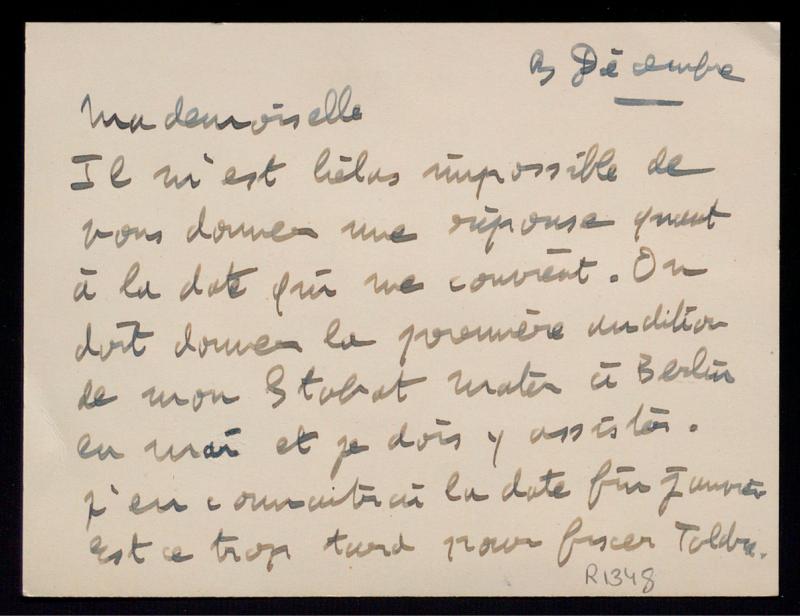 3 Décembre
Mademoiselle
Il m'est hélas impossible de
vous donner une réponse quant
à la date qui me convient. On
doit donner la première audition
de mon Stabat Mater à Berlin
en mai et je dois y assister.
J'en connaitrai la date fin Janvier
Est ce trop tard pour fixer Toldra.
R1348